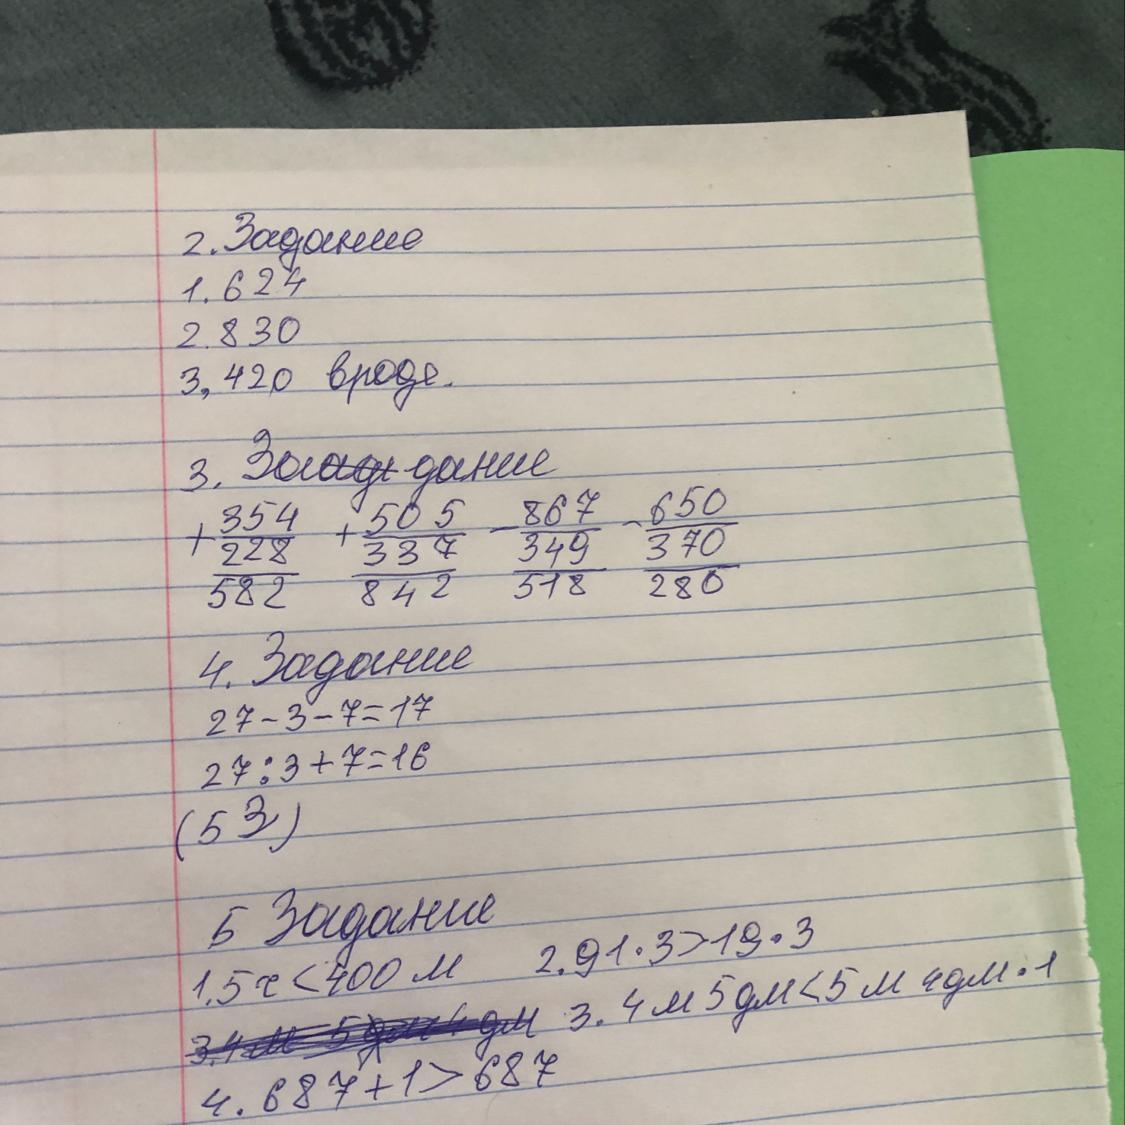 2. Задание
1. 624
2. 830
3, 420 вроде.
3. Задание
+354 +505 -867 -650
228 337 349 370
582 842 518 280
4. Задание
27-3-7=17
27:3+7=16
(53)
5 Задание
1. 5 < 400 м 2. 91·3>19·3
3. 4 м 5 дм<5 м 4 дм·1
4. 687+1>687